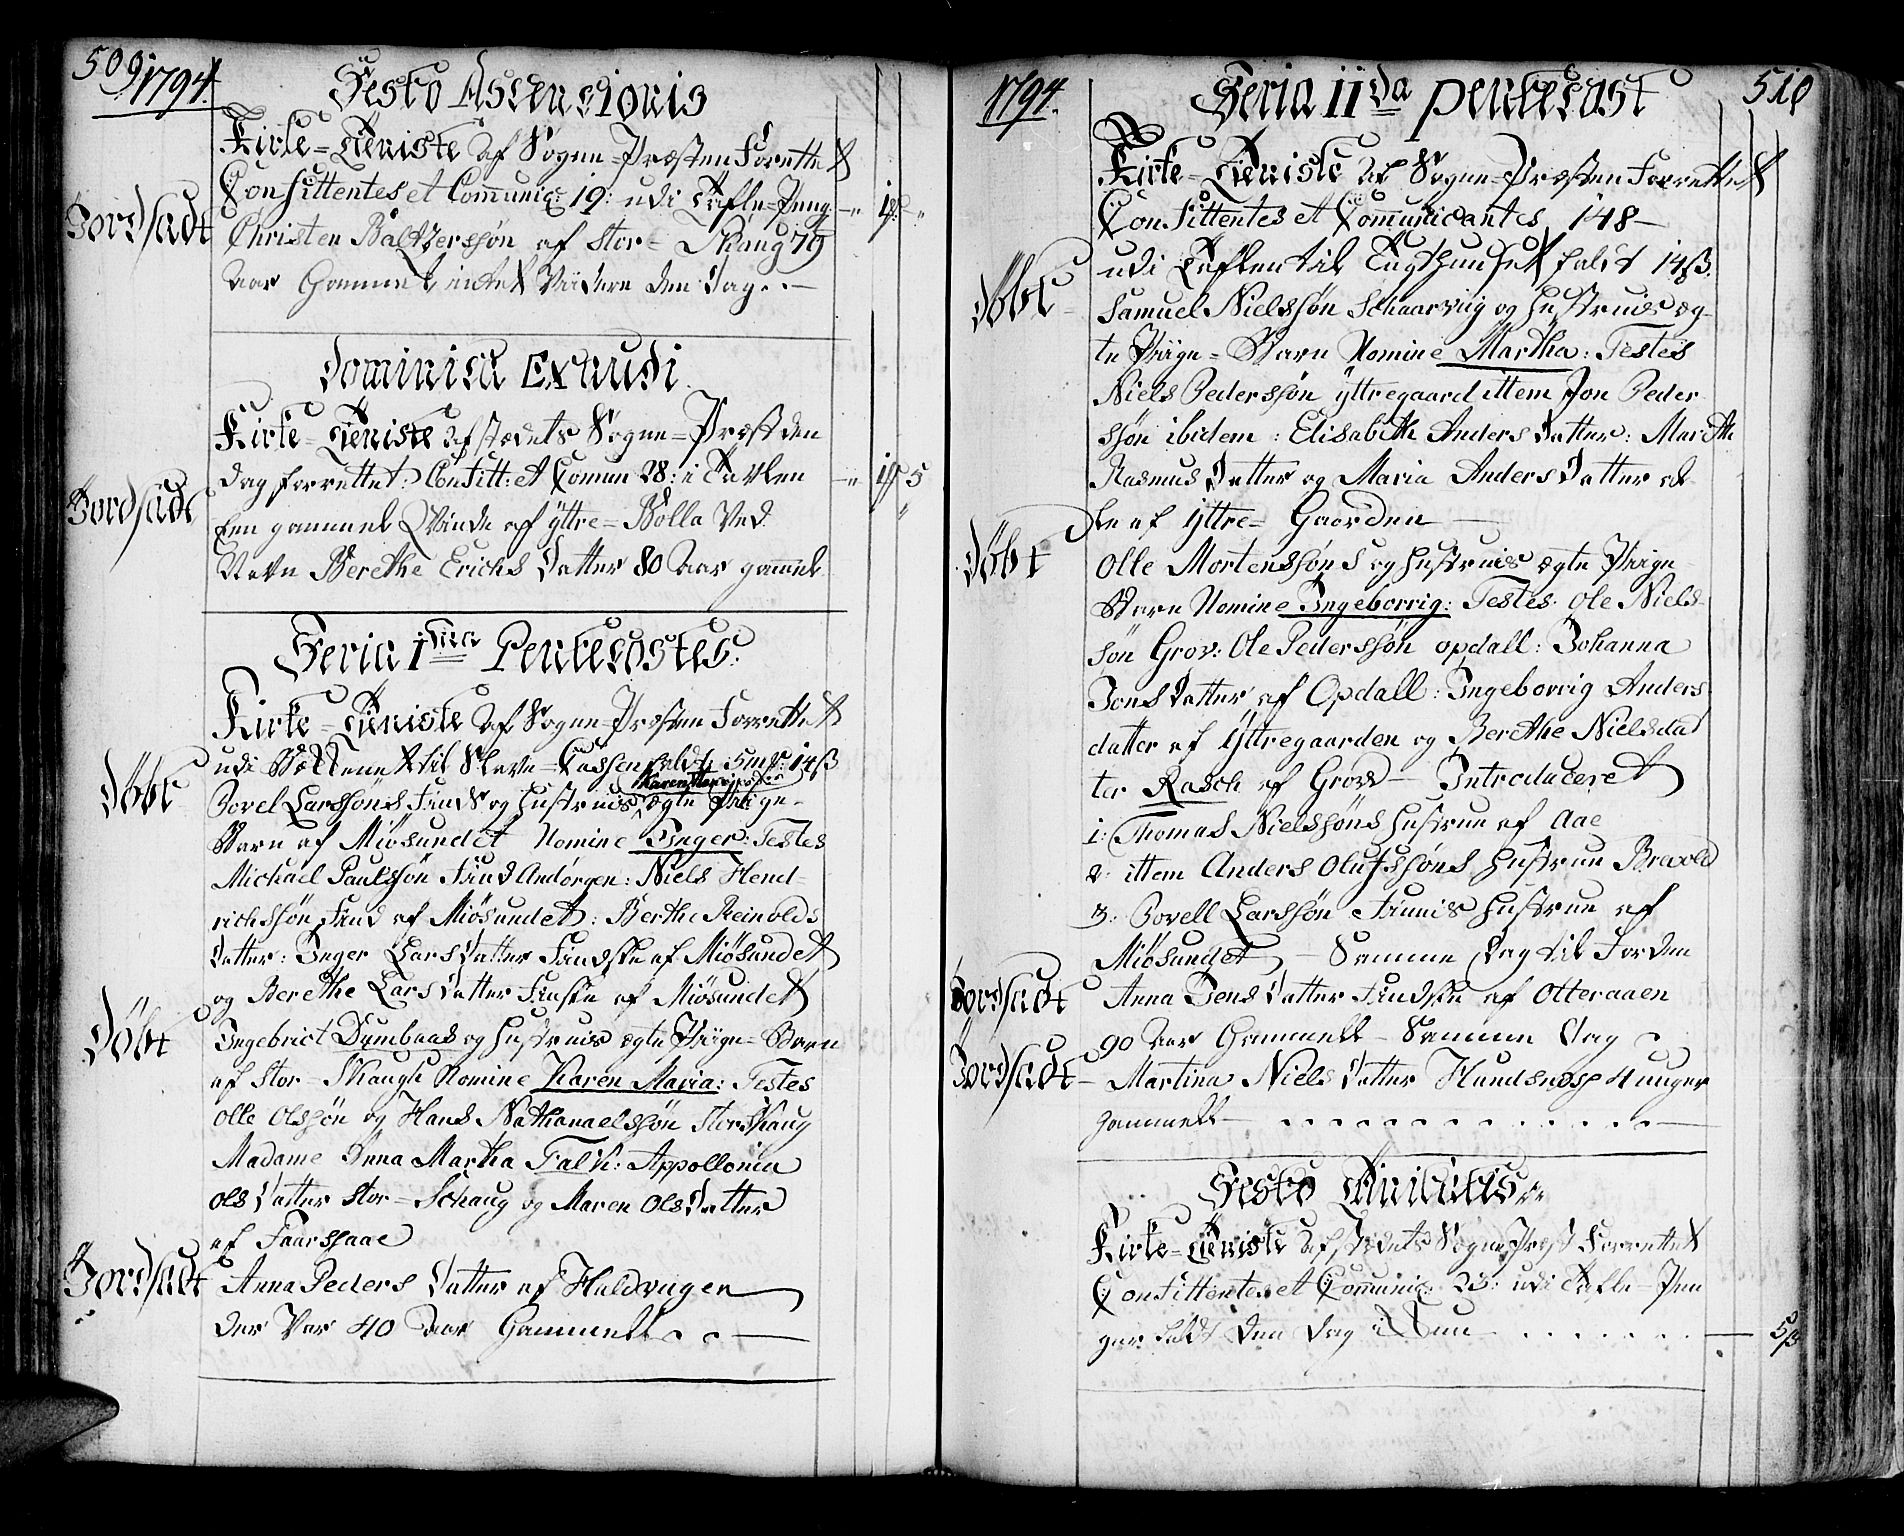 509. 1794.
Festo Ascensionis
Kirke-Tieniste af Sogne-Præsten Forrettet
Confittentes et Communic: 19: udi Tafle-Peng
Jordfadt
Christen Baltzersøn af Stor-Skaug 79
Aar Gammel intet Viidere den Dag..—
Dominica Exaudi
Kirke-Tieniste af stedets Sogne-Præst den
Dag forrettet: Confitt: et Comun 28: i Tavlen
Jordfadt
Een gammel Qvinde af Yttre-Bolla Ved
Navn Berethe Erichs Datter 80 Aar gammel
Feria 1ma Pentecostes:
Kirke-Tieniste af Sogne-Præsten Forrettet
udi Bekkenet til Slave-Cassen faldt 5 mk: 14 ß
Døbt
Povel Larssøns Finds og Hustruis ægte Piige-
Barn af Miøsundet Nomine Inger: Testes
Michael Paulsøn Find Andørgen: Niels Hend-
richssøn Find af Miøsundet: Berthe Reinolds
Datter: Inger Lars Datter Findske af Miøsundet
og Berethe Lars Datter Finske af Miøsundet
Døbt
Ingebrict Dumbaas og Hustruis ægte Piige-Barn
af Stor-Skaugh Nomine Karen Maria: Testes
Olle Olssøn og Hans Nathanaelssøn Storskaug
Madame Anna Martha Falk: Appollonia
Ols Datter Stor-Schaug og Maren Ols Datter
af Faarssaae
Jordfadt
Anna Peders Datter af Haldvugen
Der Var 40 Aar Gammel..—
1794. 510
Feria IIda Pentecost
Kirke-Tieniste af Sogne-Præsten Forrettet
Confittentes et Communicantes 148—
udi Taflen til Tugthuuset faldt 14 ß.
Døbt
Samuel Nielssøn Schaarviig og Hustruis æg-
te Piige-Barn Nomine Martha: Testes
Niels Pederssøn Yttregaard ittem Jon Peder
ssøn ibidem: Elisabeth Anders Datter: Marith
Rasmus Datter og Maria Anders Datter al-
le af Yttre-Gaarden —
Døbt
Olle Mortenssøns og Hustruis ægte Piige
Barn Nomine Ingeborrig: Testes Ole Niels-
søn Grov: Ole Pederssøn Opdall: Johanna
Jons Datter af Opdall: Ingeborrig Anders
datter af Yttregaarden og Berethe Nielsdat
ter Rasch af Grov — Introduceret
1: Thomas Nielssøns Hustrue af Aae
2: ittem Anders Olufssøns Hustrue Bravold
3: Povell Larssøn Finnis Hustrue af
Miøsundet — Samme Dag til Jorden
Jordfadt
Anna Jens Datter Findske af Otteraaen
90 Aar Gammell — Samme Dag
Jordfadt
Martina Niels Datter Hundsnæss 4 uuger
gammell —
Festo Trinitatis
Kirke-Tieniste af stedets Sogne Præst Forrettet
Confittentes et Communic: 23: udi Tafle-Pen
ger faldt den Dag — 5 ß